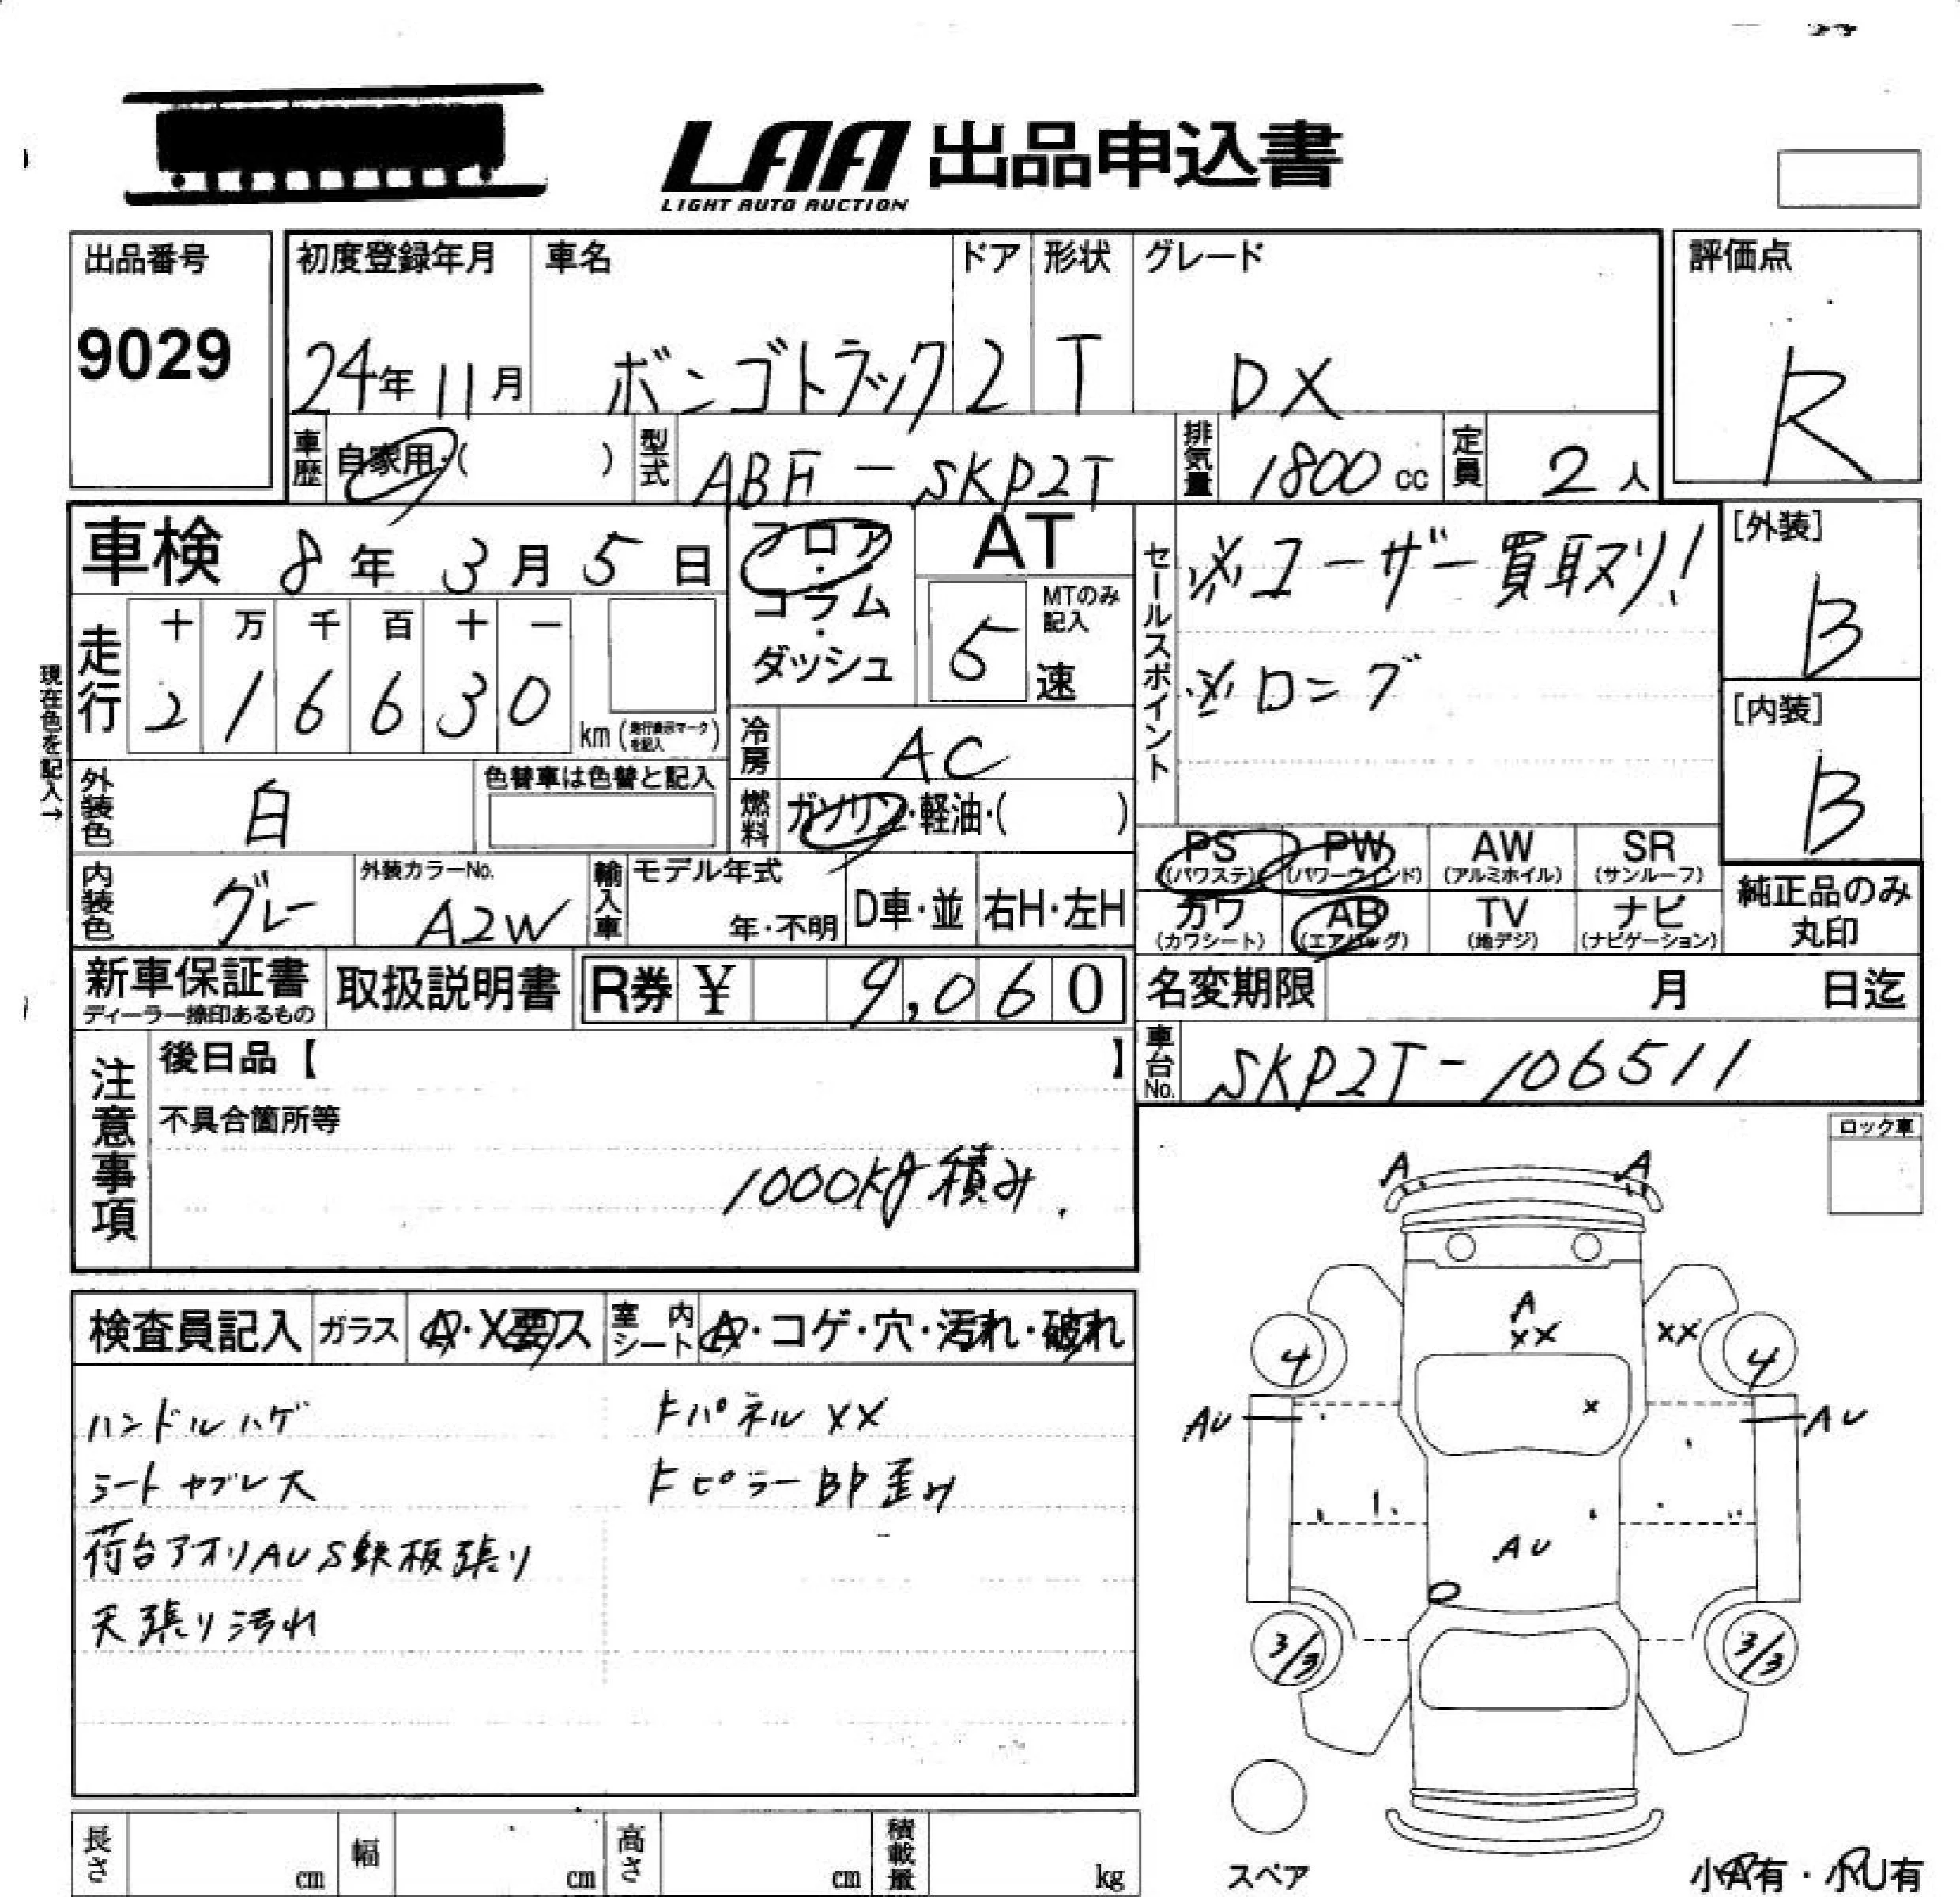 LAA 出品申込書
LIGHT AUTO AUCTION
出品番号
9029
初度登録年月
24年 11月
車名
ボンゴトラック
ドア
2
形状
T
グレード
DX
評価点
R
車歴 自家用・( )
型式 ABF-SKP2T
排気量 1800 cc
定員 2 人
車検 8年 3月 5日
フロア・コラム・ダッシュ
AT
MTのみ記入
5 速
セールスポイント
※ユーザー買取り!
※ロング
[外装]
B
[内装]
B
現在色を記入→
走行
十 万 千 百 十 一
2 1 6 6 3 0
km (走行表示マークを記入)
冷房 AC
燃料 ガソリン・軽油・( )
外装色 白
色替車は色替と記入
PS (パワステ)
PW (パワーウィンド)
AW (アルミホイル)
SR (サンルーフ)
カワ (カワシート)
AB (エアバッグ)
TV (地デジ)
ナビ (ナビゲーション)
純正品のみ丸印
内装色 グレー
外装カラーNo. A2W
輸入車
モデル年式
年・不明
D車・並
右H・左H
新車保証書
ディーラー捺印あるもの
取扱説明書
R券 ¥ 9,060
名変期限 月 日迄
車台No. SKP2T-106511
注意事項
後日品【 】
不具合箇所等
1000kg積み.
ロック車
検査員記入
ガラス A・X要ス
室内シート A・コゲ・穴・汚れ・破れ
ハンドルハゲ
シートヤブレ大
荷台アオリAUS鉄板張り
天張り汚れ
FパネルXX
FピラーBP歪み
A
A
A
XX
XX
4
4
X
AU
AU
AU
3/3
3/3
スペア
小A有・小U有
長さ cm
幅 cm
高さ cm
積載量 kg